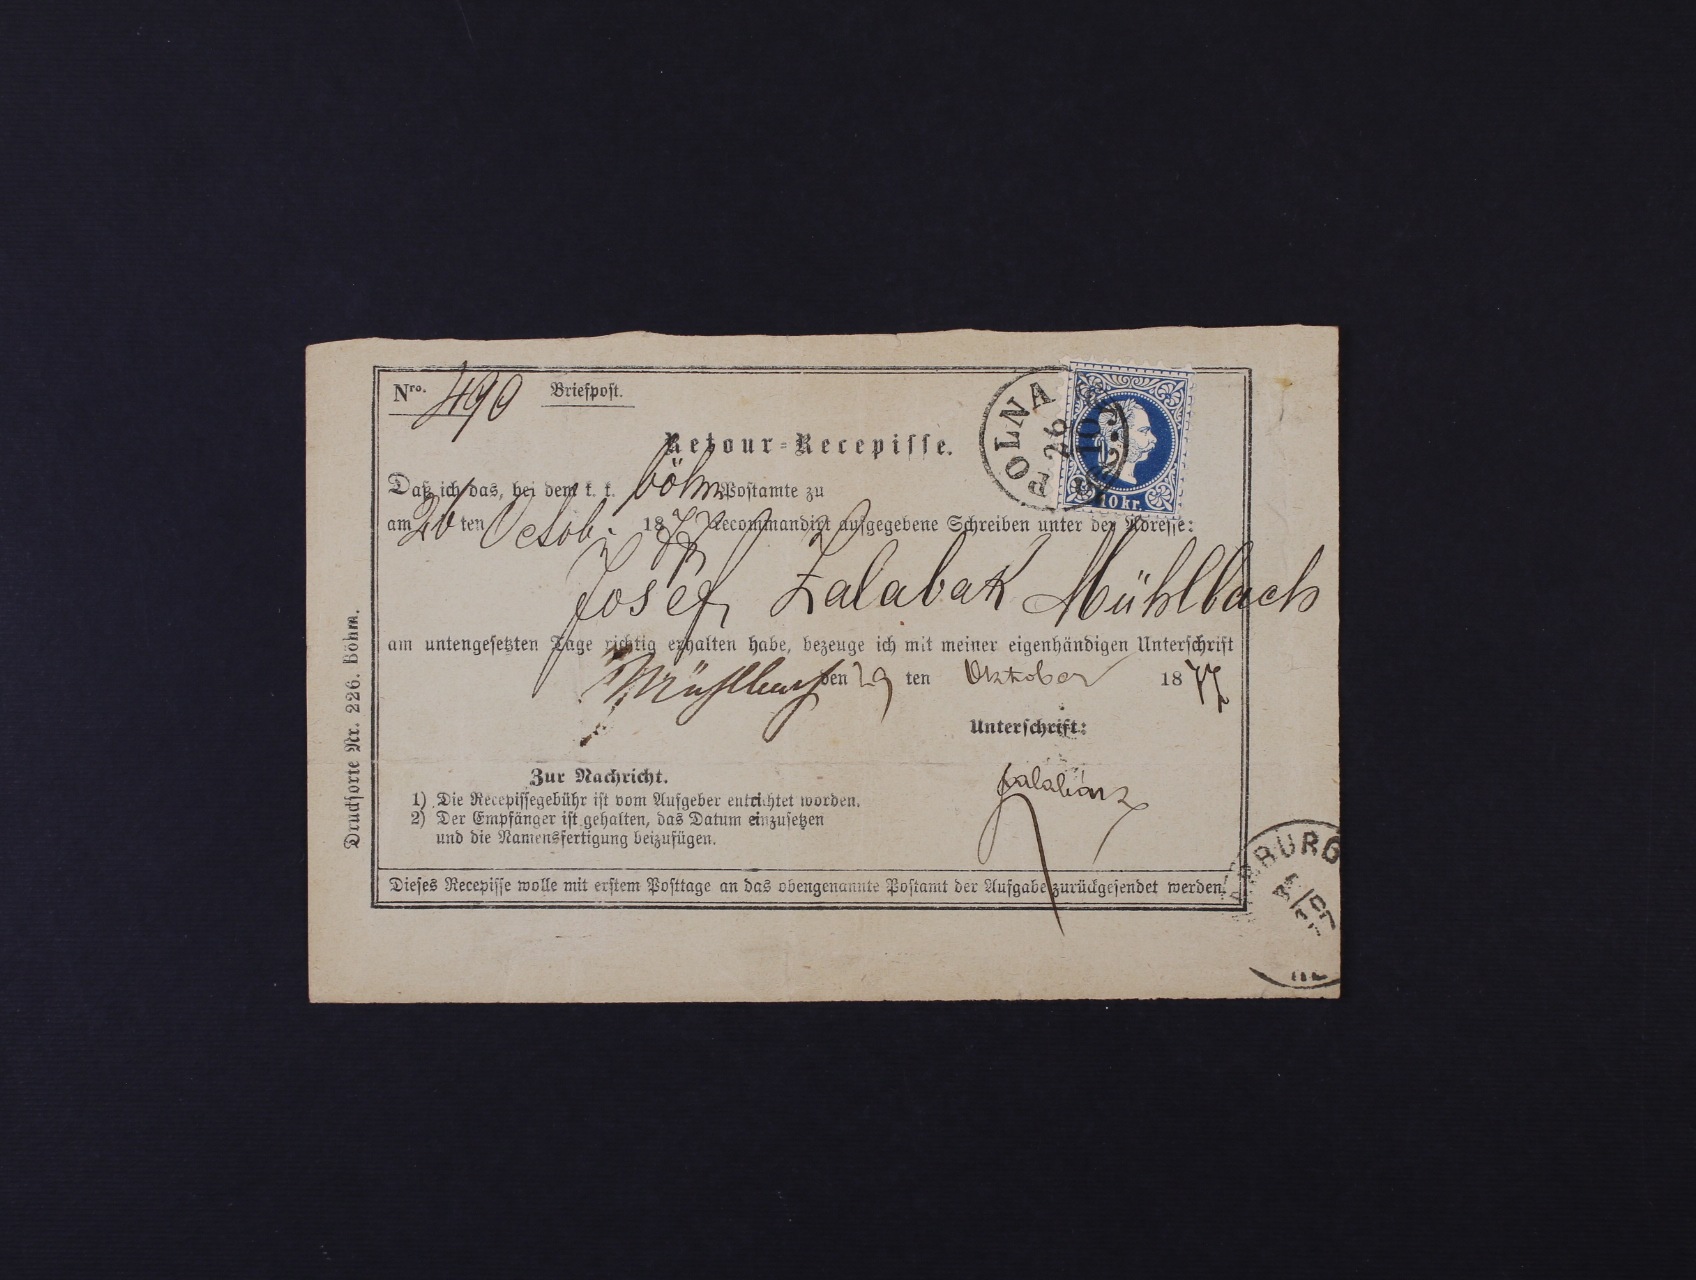 Nro. 490 Briefpost.
POLNA 26 10
10 kr.
Retour-Recepisse.
Daß ich das, bei dem k. k. böhm Postamte zu
am 26 ten Octob. 1877 recommandirt aufgegebene Schreiben unter der Adresse:
Josef Zalabak Mühlbach
am untengesetzten Tage richtig erhalten habe, bezeuge ich mit meiner eigenhändigen Unterschrift
Mühlbach den 29 ten Oktober 1877
Unterschrift:
Zur Nachricht.
1) Die Recepissegebühr ist vom Aufgeber entrichtet worden.
2) Der Empfänger ist gehalten, das Datum einzusetzen
und die Namensfertigung beizufügen.
Dieses Recepisse wolle mit erstem Posttage an das obengenannte Postamt der Aufgabe zurückgesendet werden.
Drucksorte Nr. 226. Böhm.